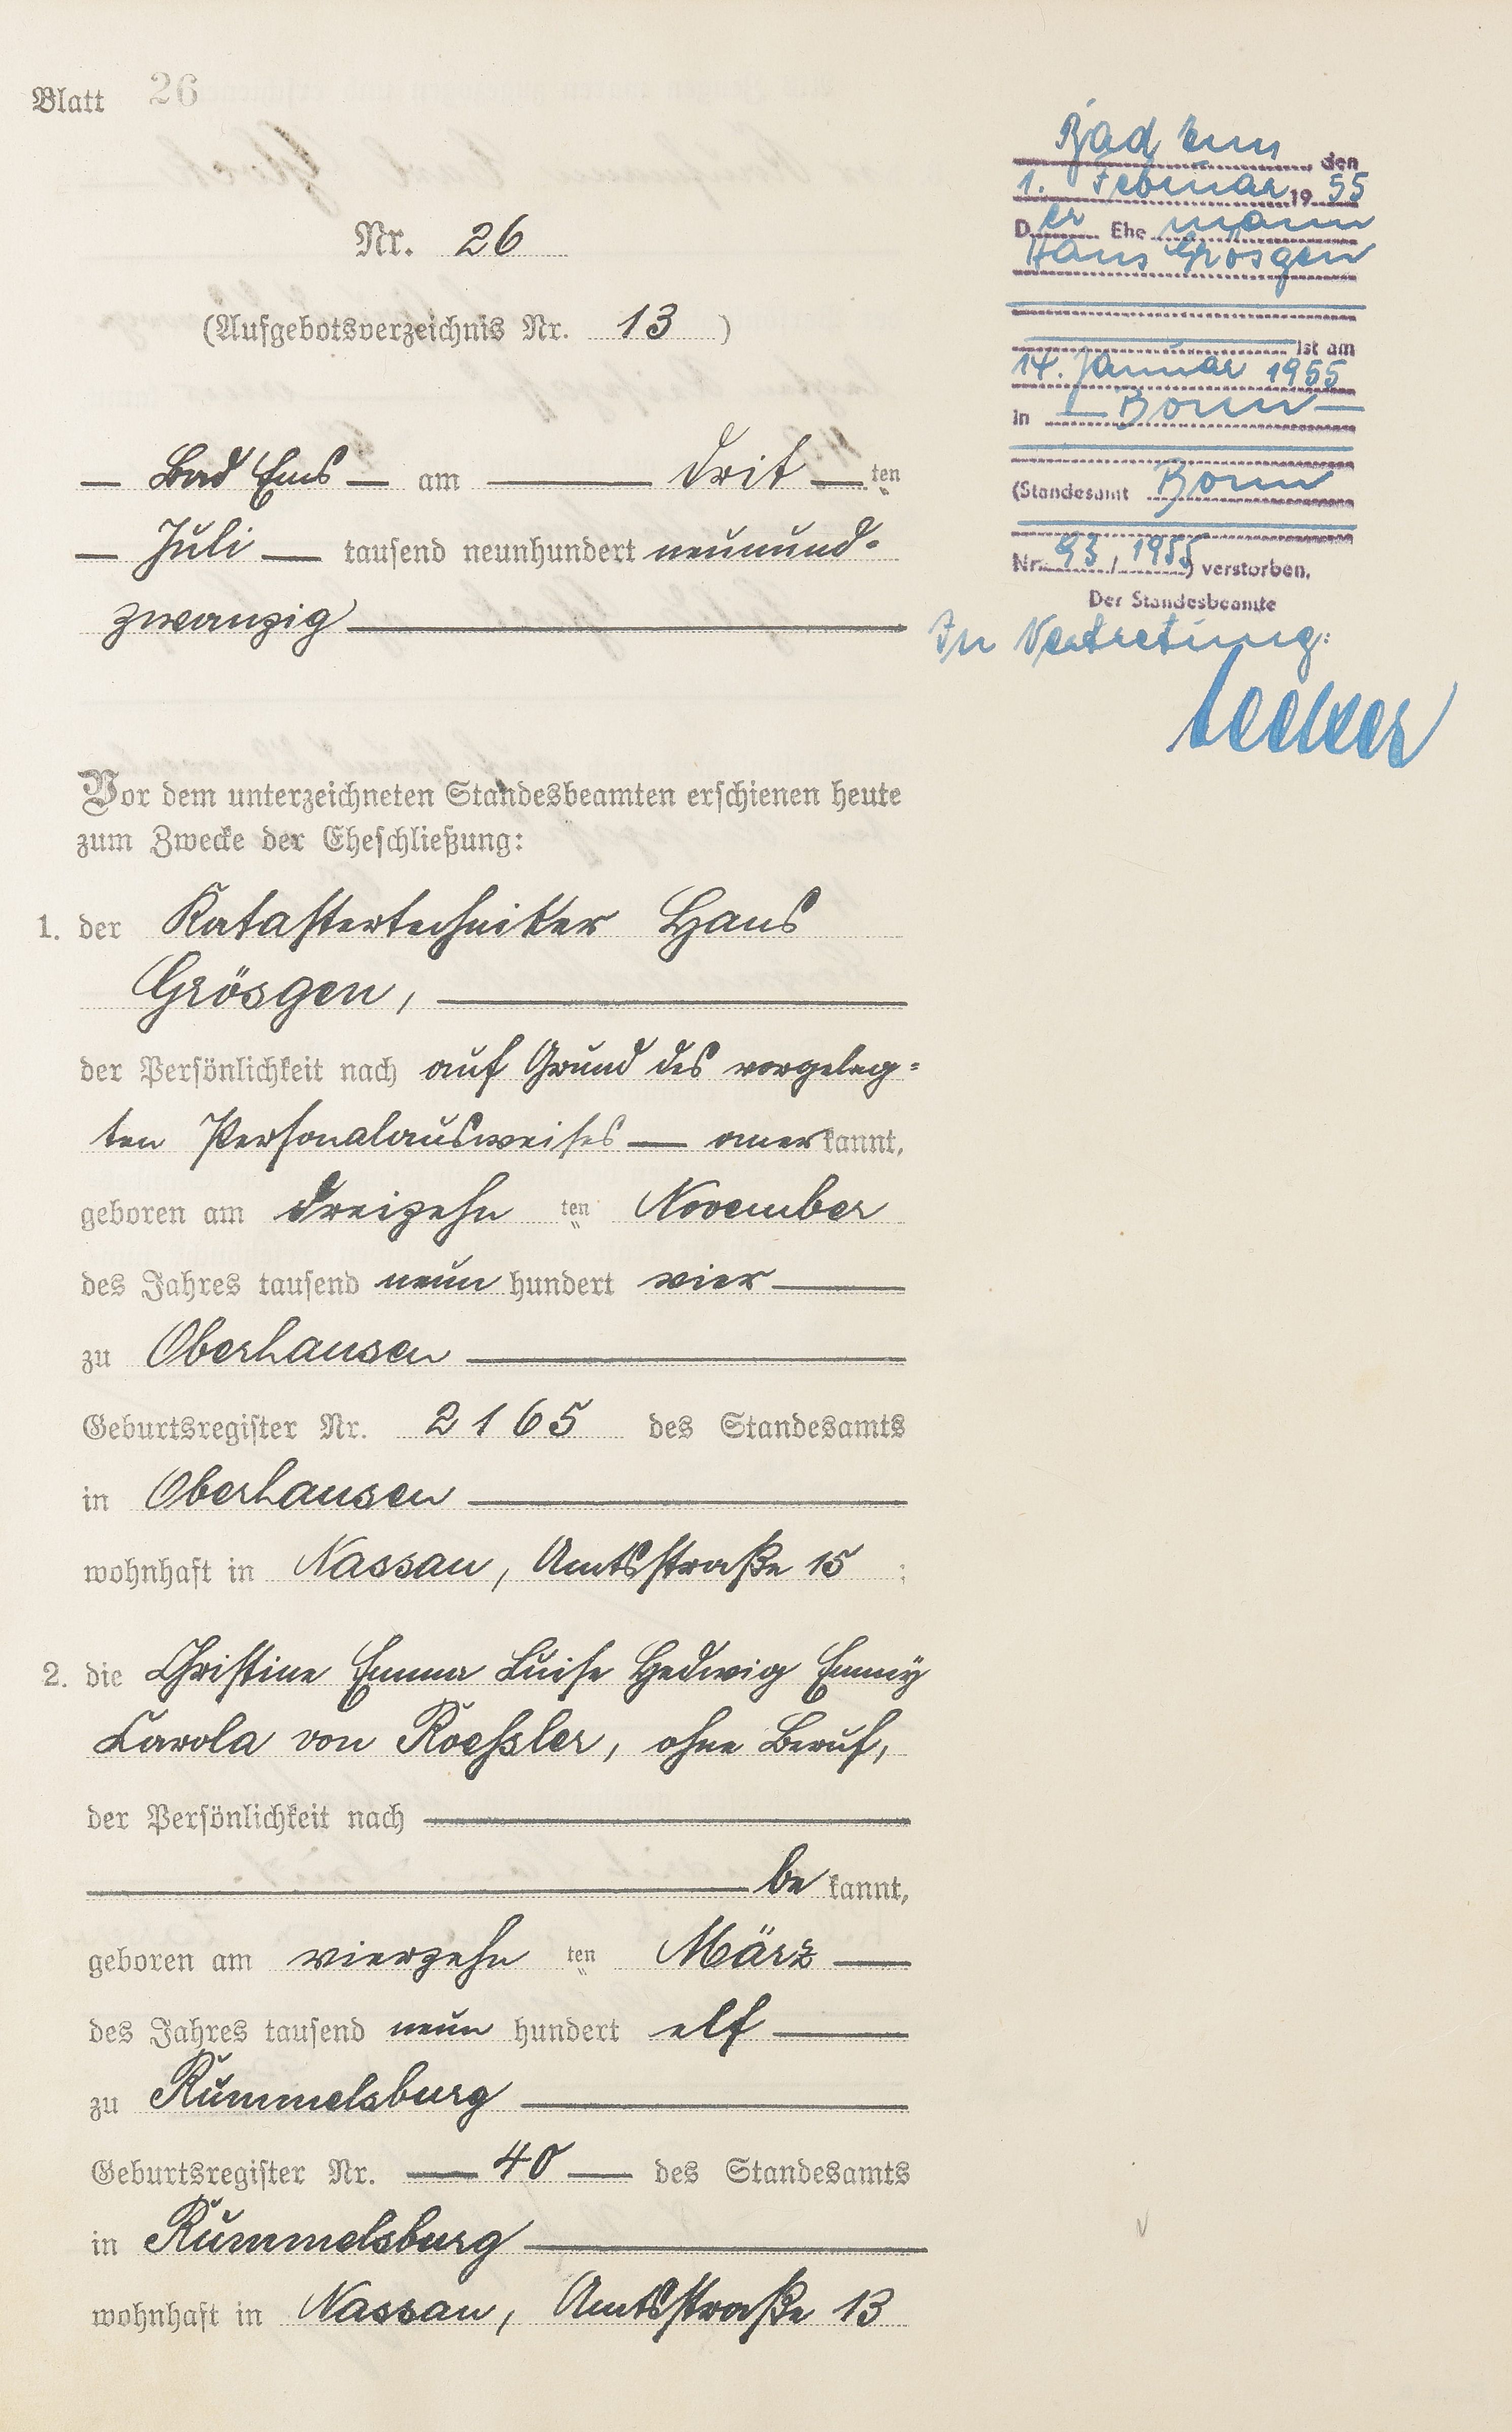 Blatt 26
Nr. 26
(Aufgebotsverzeichnis Nr. 13)
— Bad Ems — am — drit — ten
— Juli — tausend neunhundert neunund-
zwanzig —
Vor dem unterzeichneten Standesbeamten erschienen heute
zum Zwecke der Eheschließung:
1. der Katastertechniker Hans
Grösgen, —
der Persönlichkeit nach auf Grund des vorgeleg=
ten Personalausweises — anerkannt,
geboren am dreizehn ten November
des Jahres tausend neun hundert vier —
zu Oberhausen —
Geburtsregister Nr. 2165 des Standesamts
in Oberhausen —
wohnhaft in Nassau, Amtsstraße 15 ;
2. die Christine Emma Luise Hedwig Emmy
Carola von Roessler, ohne Beruf,
der Persönlichkeit nach —
— be kannt,
geboren am vierzehn ten März —
des Jahres tausend neun hundert elf —
zu Rummelsburg —
Geburtsregister Nr. — 40 — des Standesamts
in Rummelsburg —
wohnhaft in Nassau, Amtsstraße 13
Bad Ems, den
1. Februar 1955
Der Ehemann
Hans Grösgen
ist am
14. Januar 1955
in — Bonn —
(Standesamt Bonn
Nr. 93/1955) verstorben.
Der Standesbeamte
In Vertretung: